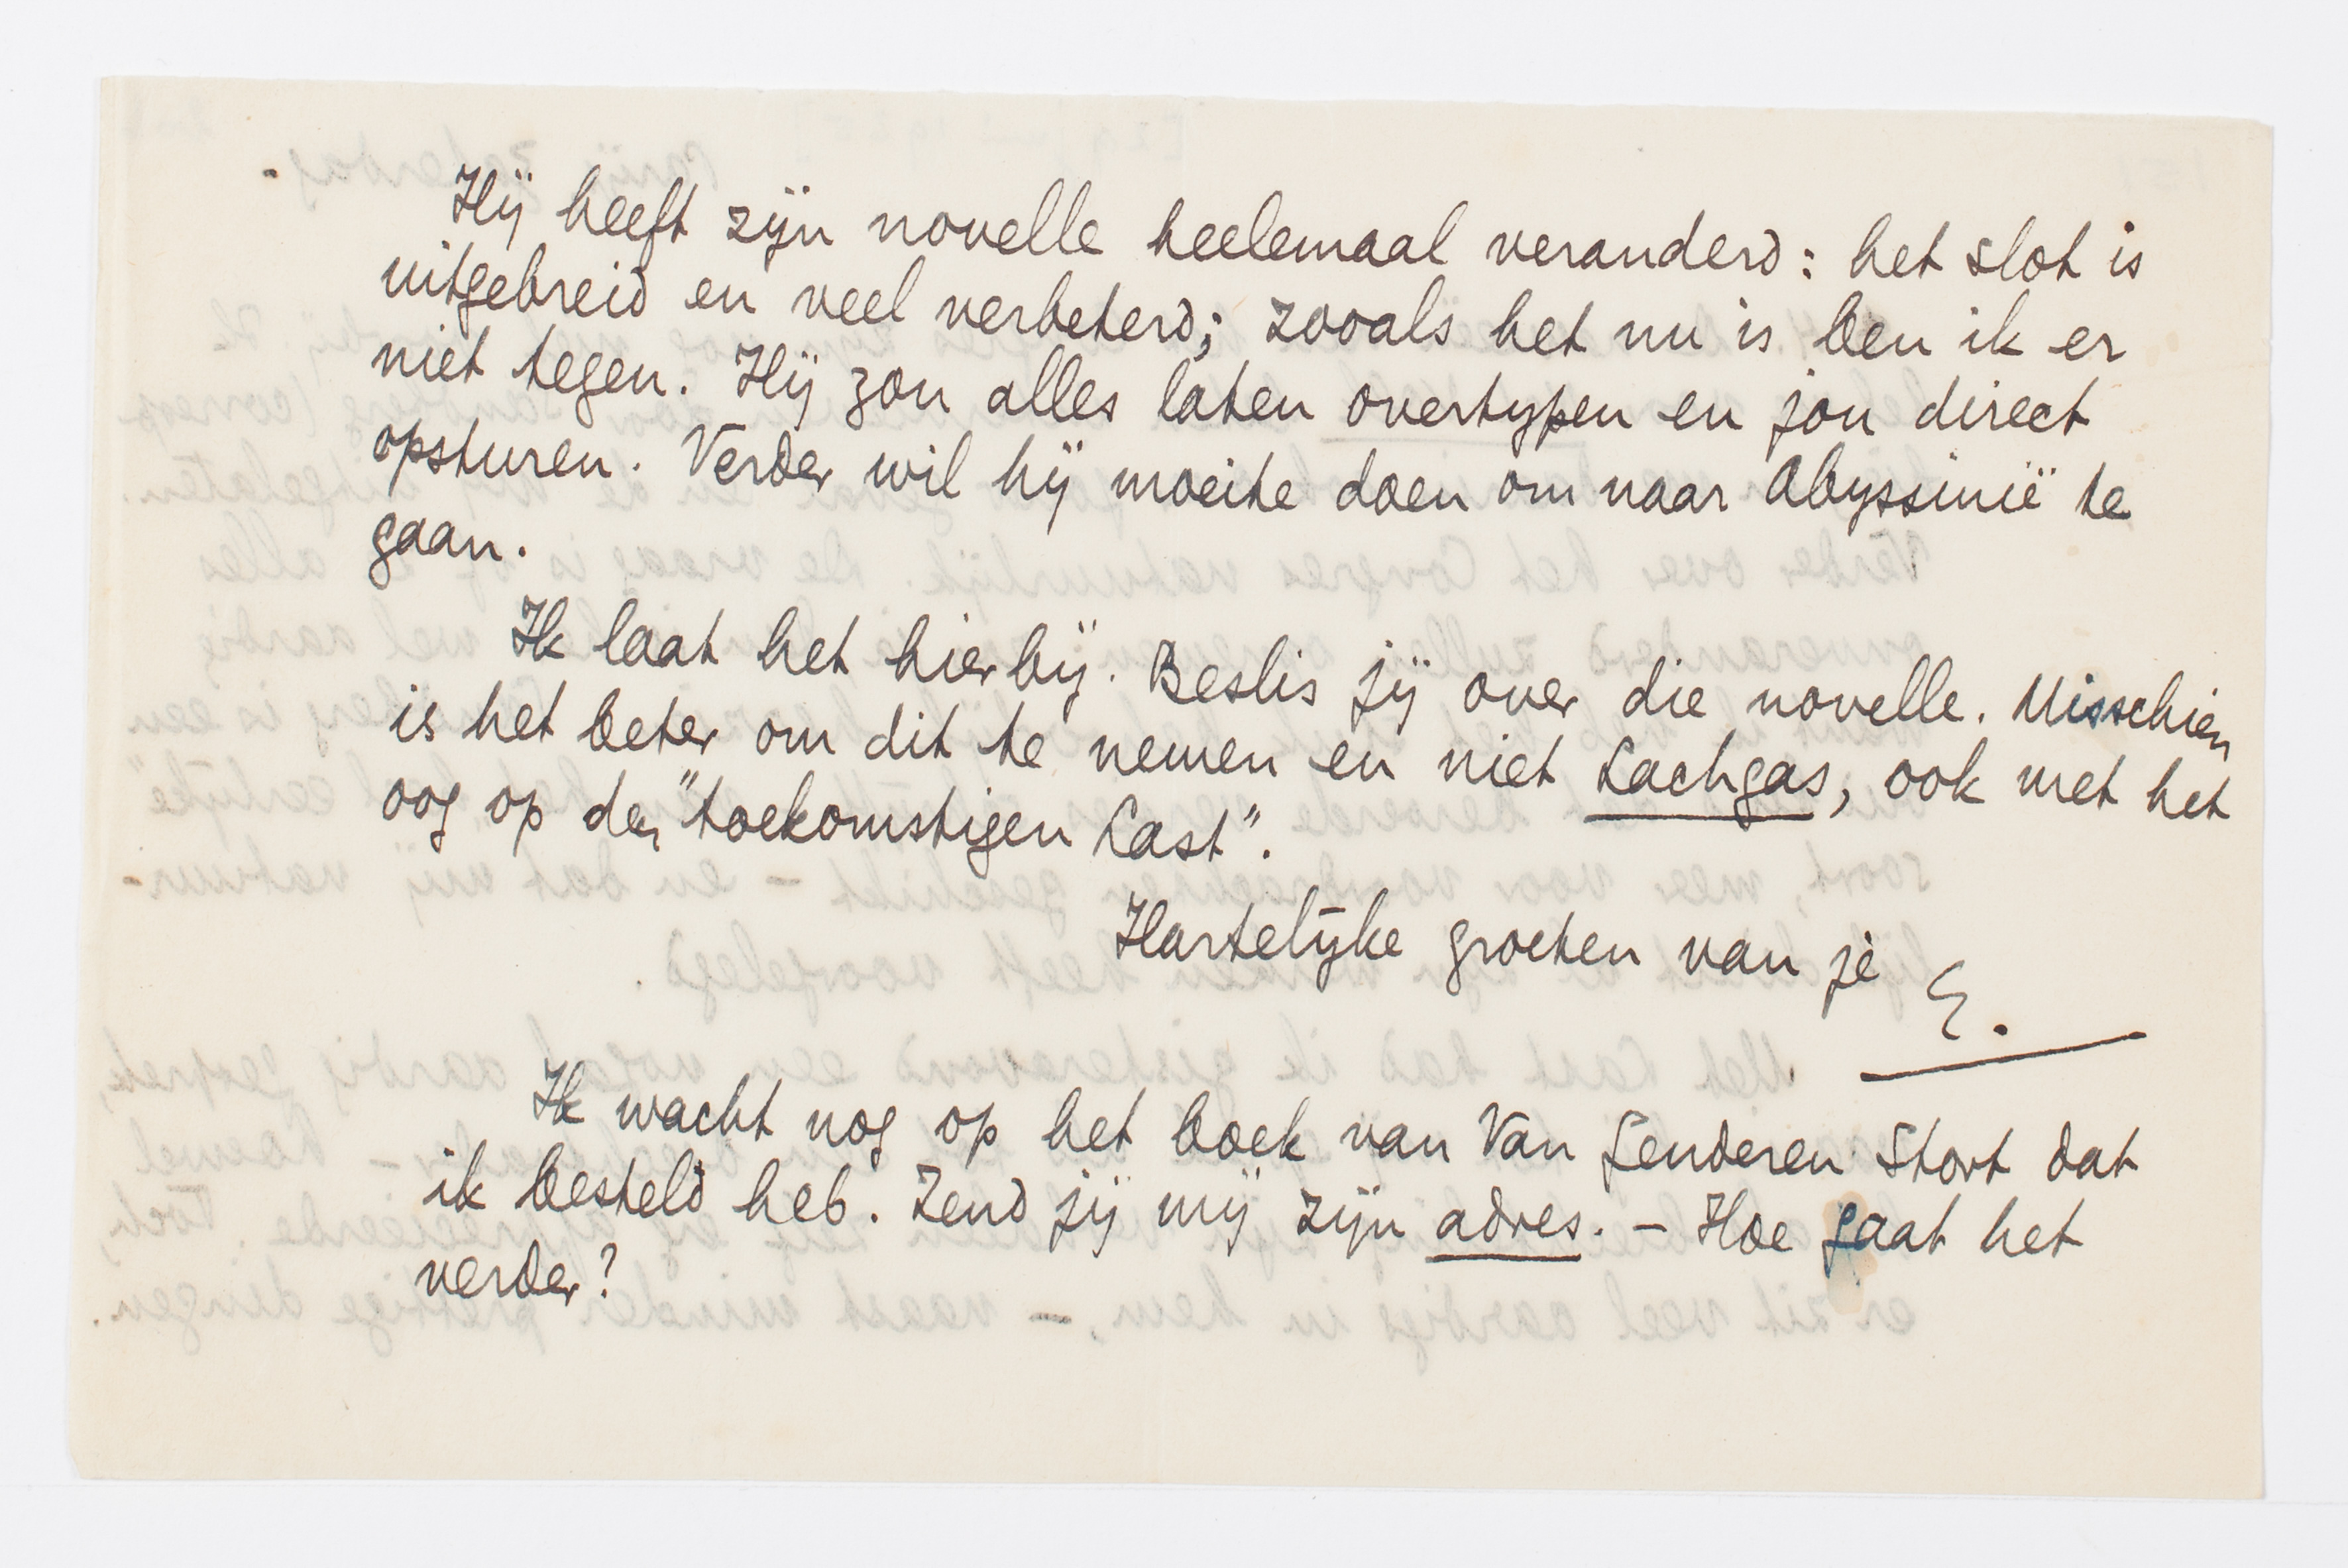 Hij heeft zijn novelle heelemaal veranderd: het slot is
uitgebreid en veel verbeterd; zooals het nu is ben ik er
niet tegen. Hij zou alles laten overtypen en jou direct
opsturen. Verder wil hij moeite doen om naar Abyssinië te
gaan.
Ik laat het hierbij. Beslis jij over die novelle. Misschien
is het beter om dit te nemen en niet Lachgas, ook met het
oog op den "toekomstigen Last".
Hartelijke groeten van je
E.
Ik wacht nog op het boek van Van Genderen Stort dat
ik besteld heb. Zend jij mij zijn adres. – Hoe gaat het
verder?